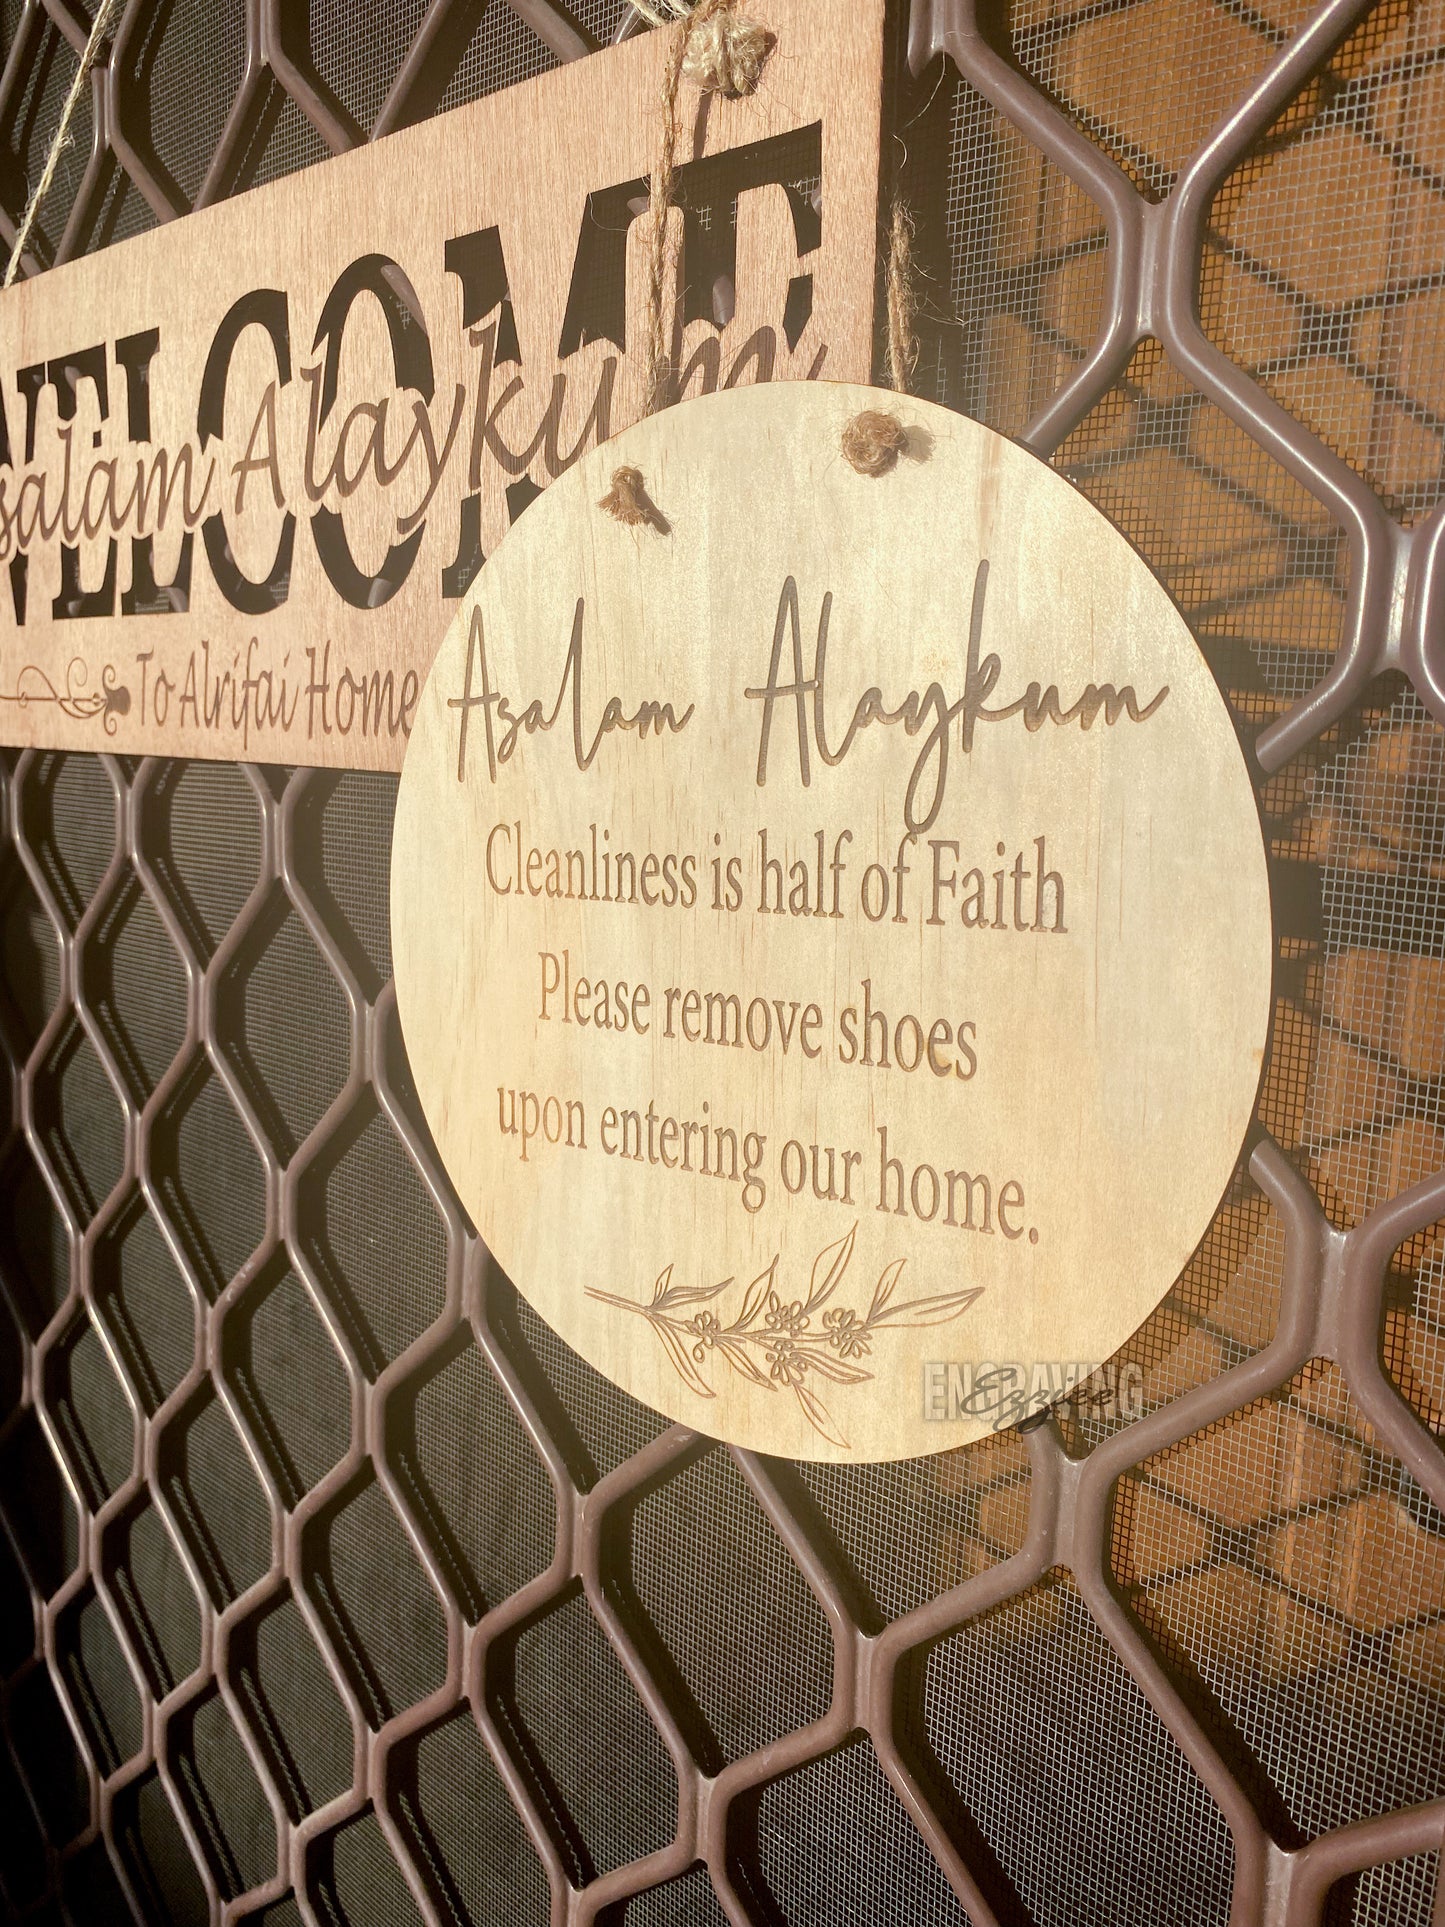 WELCOME
salam Alaykum
To Alrifai Home
Asalam Alaykum
Cleanliness is half of Faith
Please remove shoes
upon entering our home.
ENGRAVING
Ezziee